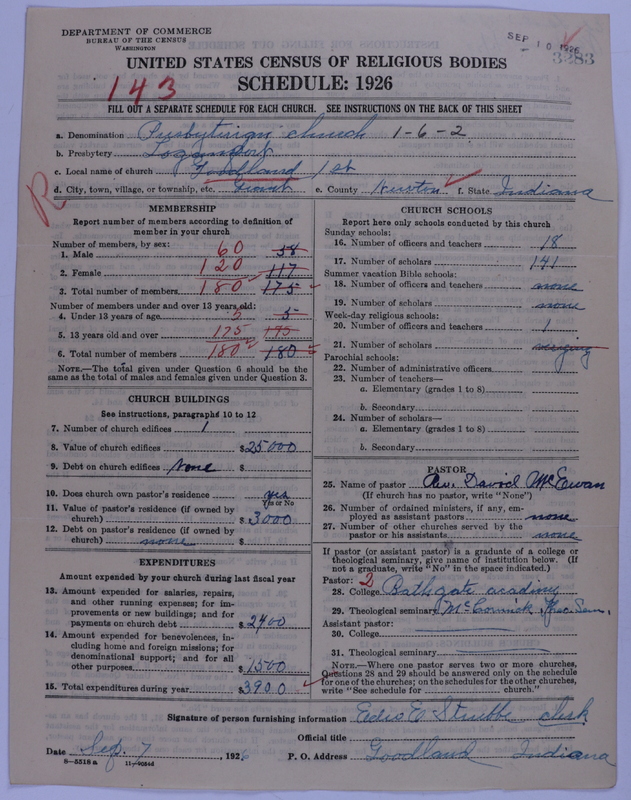 DEPARTMENT OF COMMERCE
BUREAU OF THE CENSUS
WASHINGTON
SEP 10 1926
3283
UNITED STATES CENSUS OF RELIGIOUS BODIES
SCHEDULE: 1926
143
FILL OUT A SEPARATE SCHEDULE FOR EACH CHURCH. SEE INSTRUCTIONS ON THE BACK OF THIS SHEET
a. Denomination Presbyterian church 1-6-2
b. Presbytery Logansport
c. Local name of church Goodland 1st
R
d. City, town, village, or township, etc. Grant e. County Newton f. State Indiana
MEMBERSHIP
Report number of members according to definition of member in your church
Number of members, by sex:
1. Male 60 58
2. Female 120 117
3. Total number of members 180 175
Number of members under and over 13 years old:
4. Under 13 years of age 5 5
5. 13 years old and over 175 175
6. Total number of members 180 180
NOTE.—The total given under Question 6 should be the same as the total of males and females given under Question 3.
CHURCH BUILDINGS
See instructions, paragraphs 10 to 12
7. Number of church edifices 1
8. Value of church edifices $25000
9. Debt on church edifices None $
10. Does church own pastor's residence yes
Yes or No
11. Value of pastor's residence (if owned by church) $3000
12. Debt on pastor's residence (if owned by church) none $
EXPENDITURES
Amount expended by your church during last fiscal year
13. Amount expended for salaries, repairs, and other running expenses; for improvements or new buildings; and for payments on church debt $2400
14. Amount expended for benevolences, including home and foreign missions; for denominational support; and for all other purposes $1500
15. Total expenditures during year $3900
CHURCH SCHOOLS
Report here only schools conducted by this church
Sunday schools:
16. Number of officers and teachers 18
17. Number of scholars 141
Summer vacation Bible schools:
18. Number of officers and teachers none
19. Number of scholars none
Week-day religious schools:
20. Number of officers and teachers 1
21. Number of scholars
Parochial schools:
22. Number of administrative officers
23. Number of teachers—
a. Elementary (grades 1 to 8)
b. Secondary
24. Number of scholars—
a. Elementary (grades 1 to 8)
b. Secondary
PASTOR
25. Name of pastor Rev. David McEwan
(If church has no pastor, write "None")
26. Number of ordained ministers, if any, employed as assistant pastors none
27. Number of other churches served by the pastor or his assistants none
If pastor (or assistant pastor) is a graduate of a college or theological seminary, give name of institution below. (If not a graduate, write "No" in the space indicated.)
Pastor: 2
28. College Bathgate academy
29. Theological seminary McCormick Theo. Sem.
Assistant pastor:
30. College
31. Theological seminary
NOTE.—Where one pastor serves two or more churches, Questions 28 and 29 should be answered only on the schedule for one of the churches; on the schedules for the other churches, write "See schedule for church."
Signature of person furnishing information Strubbe Clerk
Official title
Date Sep. 7, 1926 P. O. Address Goodland Indiana
8—5518 a